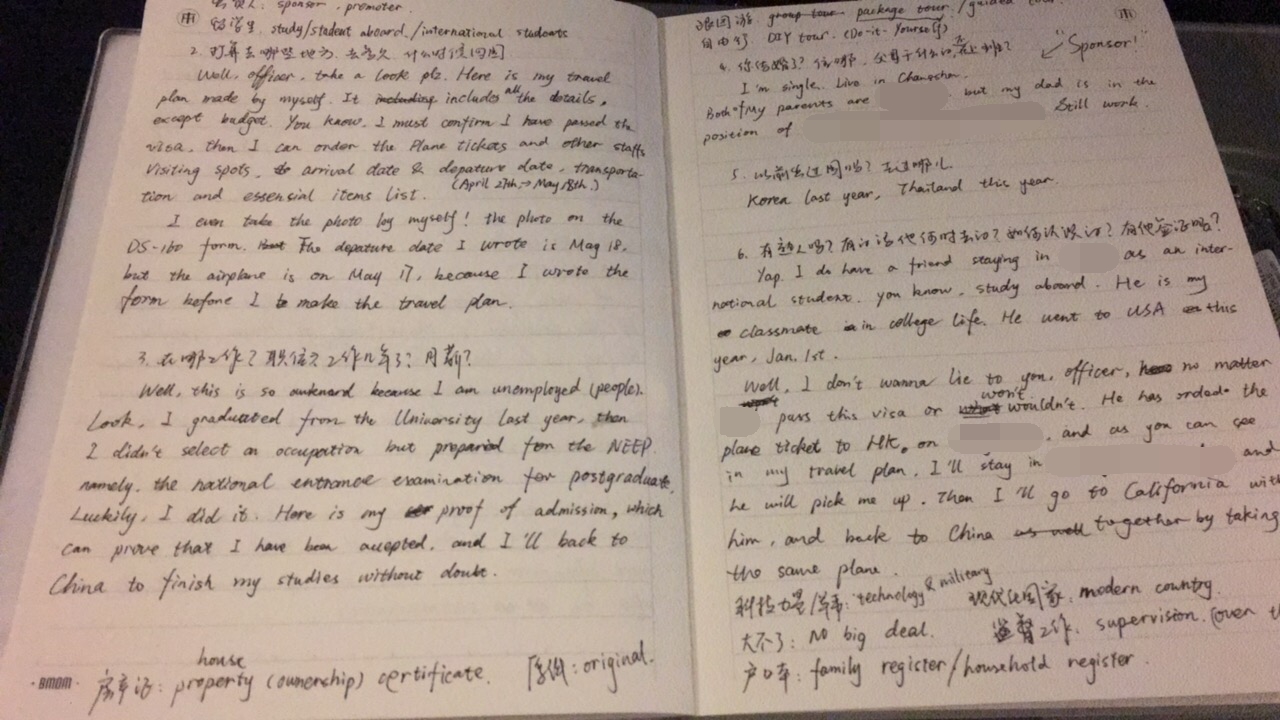 : sponsor . promoter.
留学生 . study/student aboard./international students
2. 打算去哪些地方. 去多久. 什么时候回国
Well, officer, take a look plz. Here is my travel
plan made by myself. It including includes all the details,
except budget. You know, I must confirm I have passed the
visa, then I can order the Plane tickets and other staffs
Visiting spots, arrival date & depature date, transporta-
(April 27th → May 18th.)
tion and essensial items list.
I even take the photo by myself! the photo on the
DS-160 form. But The depature date I wrote is May 18,
but the airplane is on May 17, because I wrote the
form before I make the travel plan.
3. 在哪工作? 职位? 工作几年了? 月薪?
Well, this is so awkward because I am unemployed (people).
Look, I graduated from the University last year, then
I didn't select an occupation but prepared for the NEEP.
namely, the national entrance examination for postgraduate.
Luckily, I did it. Here is my proof of admission, which
can prove that I have been accepted, and I'll back to
China to finish my studies without doubt.
house
房产证: property (ownership) certificate. 原件: original.
BMOM
跟团游. group tour package tour. /guided tour.
自由行 DIY tour. (Do-it-Yourself)
"Sponsor!"
I'm single. Live in Changchun.
Both of My parents are but my dad is in the
position of Still work.
5. 以前出过国吗? 去过哪儿
Korea last year, Thailand this year.
Yap. I do have a friend staying in as an inter-
national student. you know, study aboard. He is my
classmate in college life. He went to USA this
year, Jan. 1st.
Well, I don't wanna lie to you, officer, no matter
won't
pass this visa or wouldn't. He has ordered the
plane ticket to HK, on , and as you can see
in my travel plan, I'll stay in and
he will pick me up. Then I'll go to California with
him, and back to China as well together by taking
the same plane.
科技力量/军事: technology & military 现代化国家: modern country.
大不了: No big deal. 监督工作: supervision. (over
户口本: family register/household register.